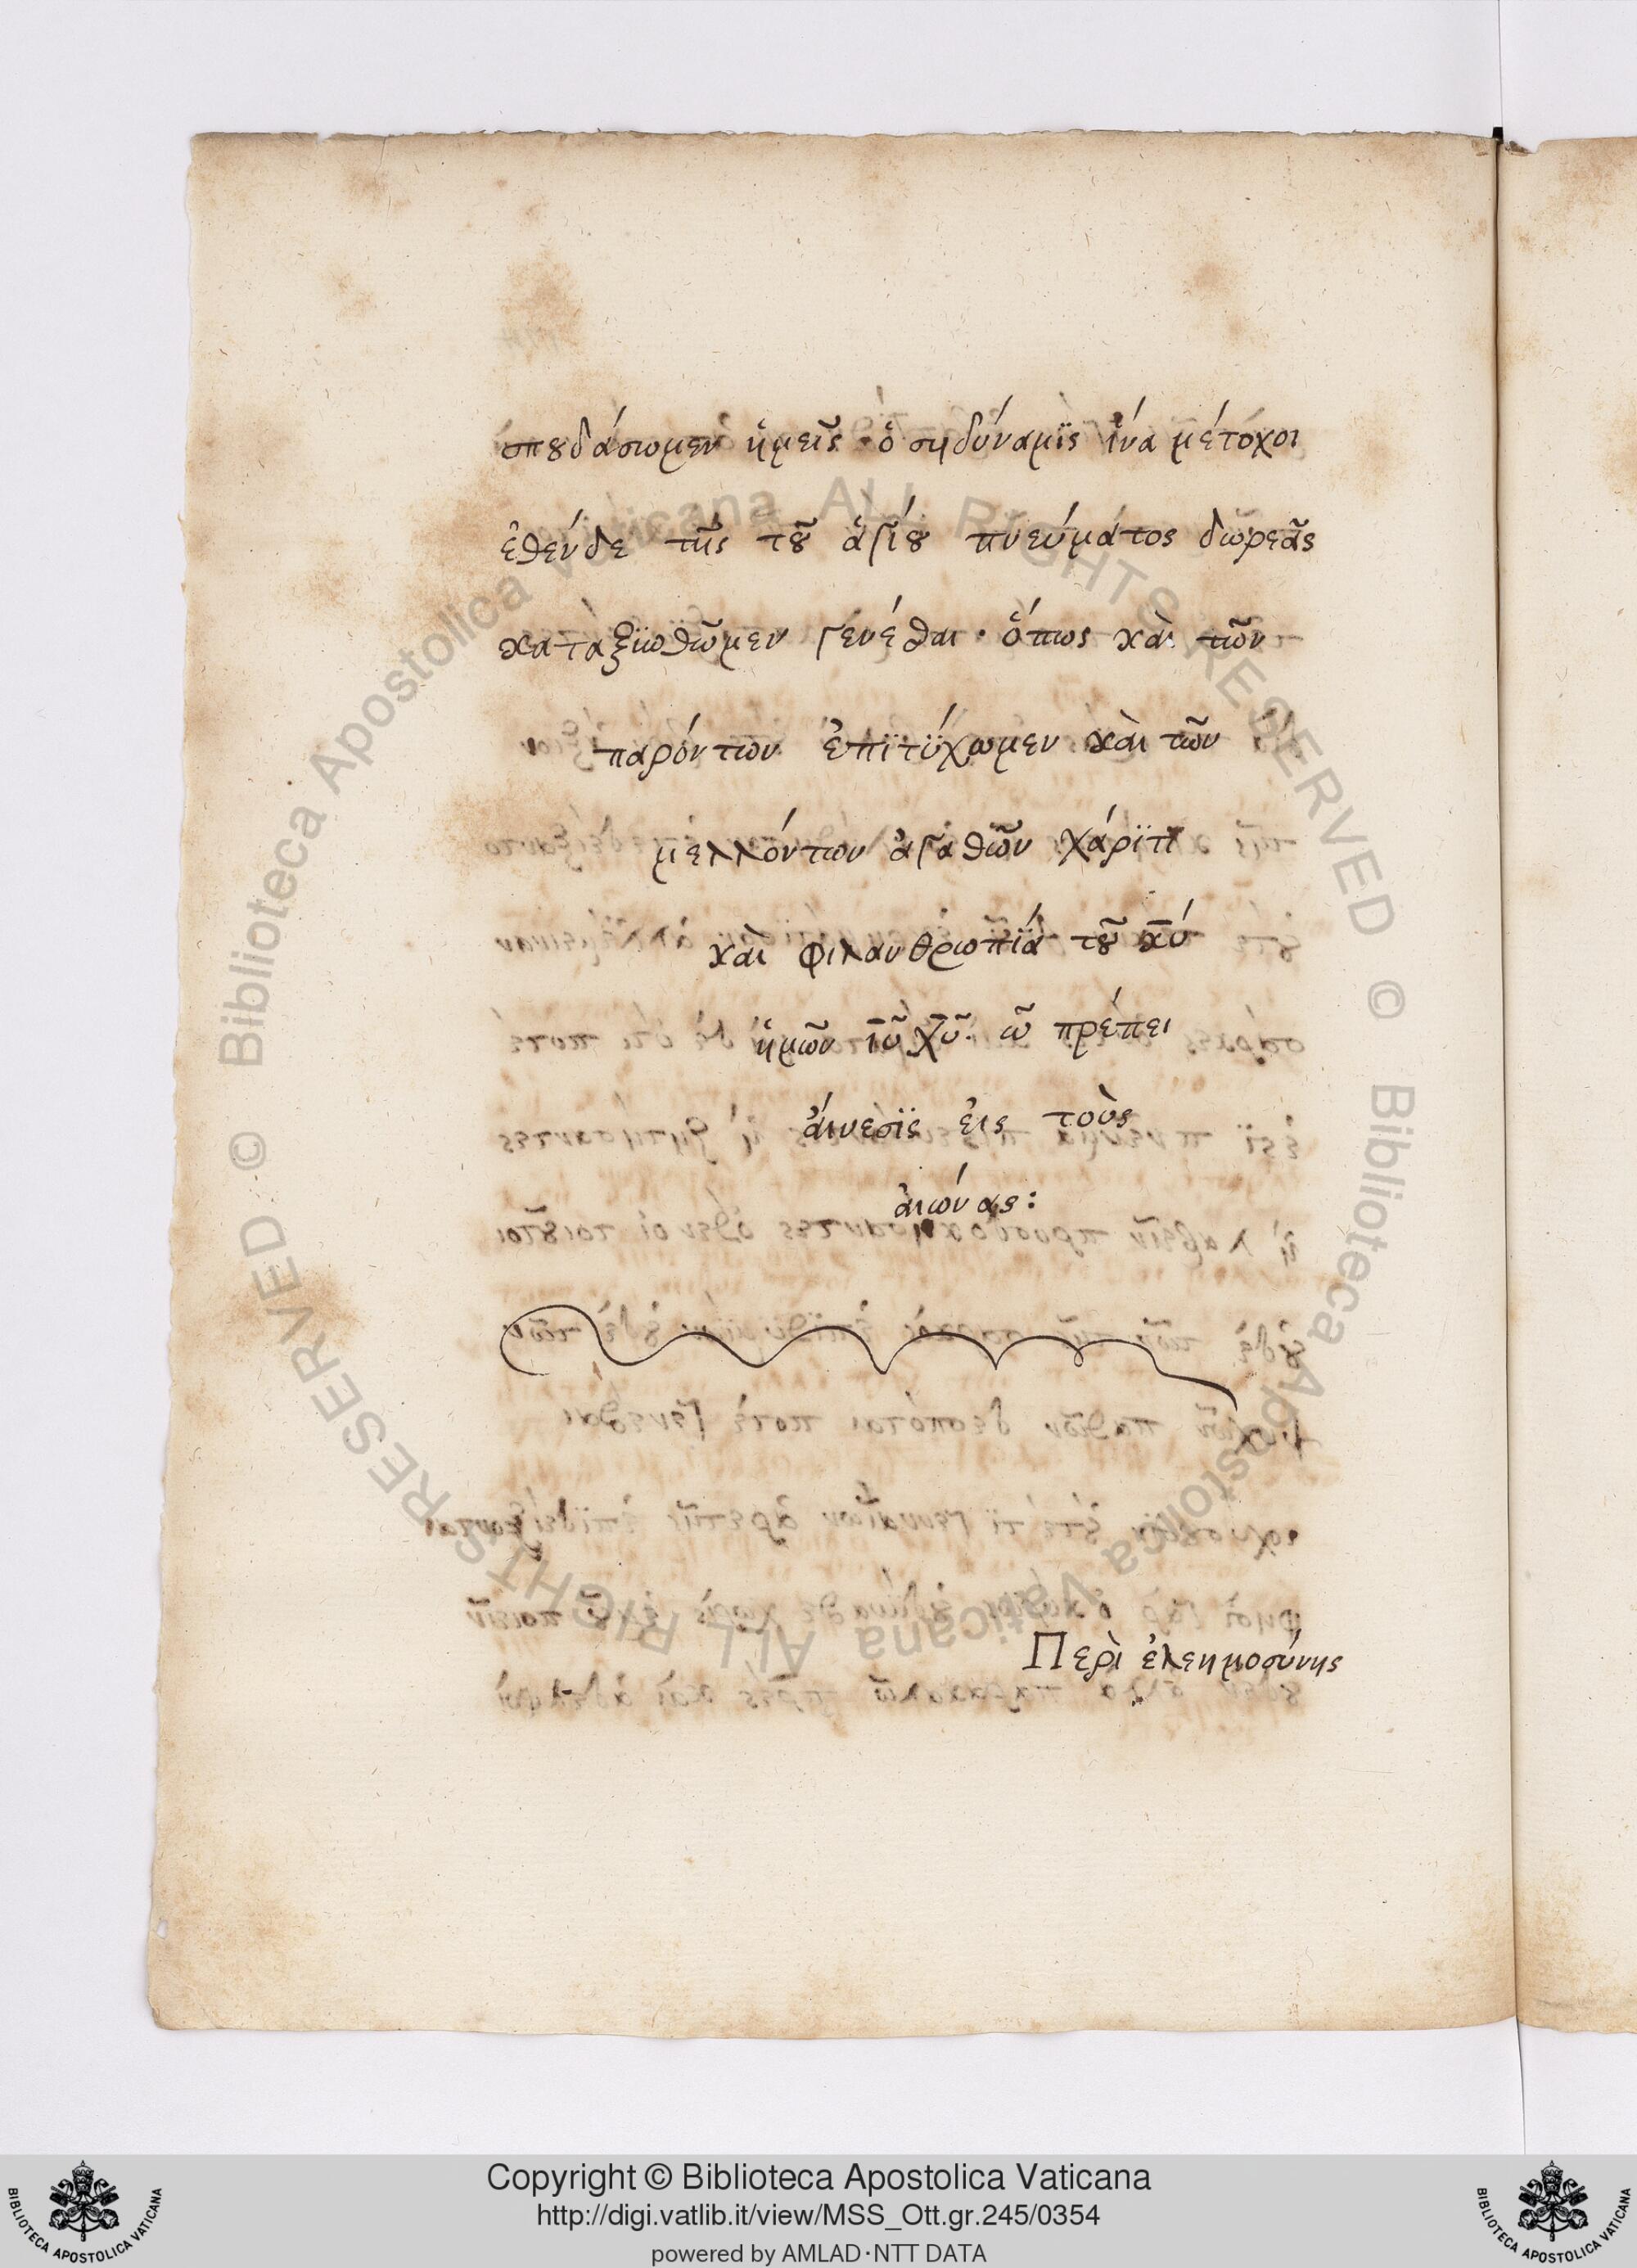 σπουδάσωμεν ἡμεῖς ὅση δύναμϊς ἵνα μέτόχοι
ἐθένδε τῆς τοῦ ἁγίου πνεύμάτος δῶρεᾶς
κατὰξϊωθῶμεν γενέσθαι· ὅπως κὰι τῶν
παρόντων ἐπϊτΰχωμεν κὰι τῶν
μελλόντων ἀγαθῶν χάρϊτι
κὰι φιλανθρωπϊά τοῦ κ̅ύ
ἡμῶν ἰ̅ῦ χ̅ῦ· ὧ πρέπει
ἄινεσϊς ἐις τοὺς
ἀιώνας:
Περὶ ἐλεημοσύνης
Biblioteca Apostolica Vaticana ALL RIGHTS RESERVED ©
Biblioteca Apostolica Vaticana ALL RIGHTS RESERVED ©
Copyright © Biblioteca Apostolica Vaticana
http://digi.vatlib.it/view/MSS_Ott.gr.245/0354
powered by AMLAD·NTT DATA
BIBLIOTECA APOSTOLICA VATICANA
BIBLIOTECA APOSTOLICA VATICANA